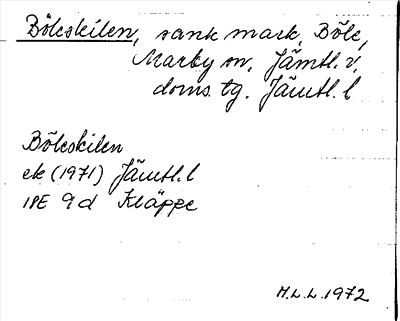 Böleskilen, sank mark, Böle,
Marby sn, Jämtl. v.
doms. tg. Jämtl. l
Böleskilen
ek (1971) Jämtl. l
18E 9d Kläppe
M.L.L. 1972